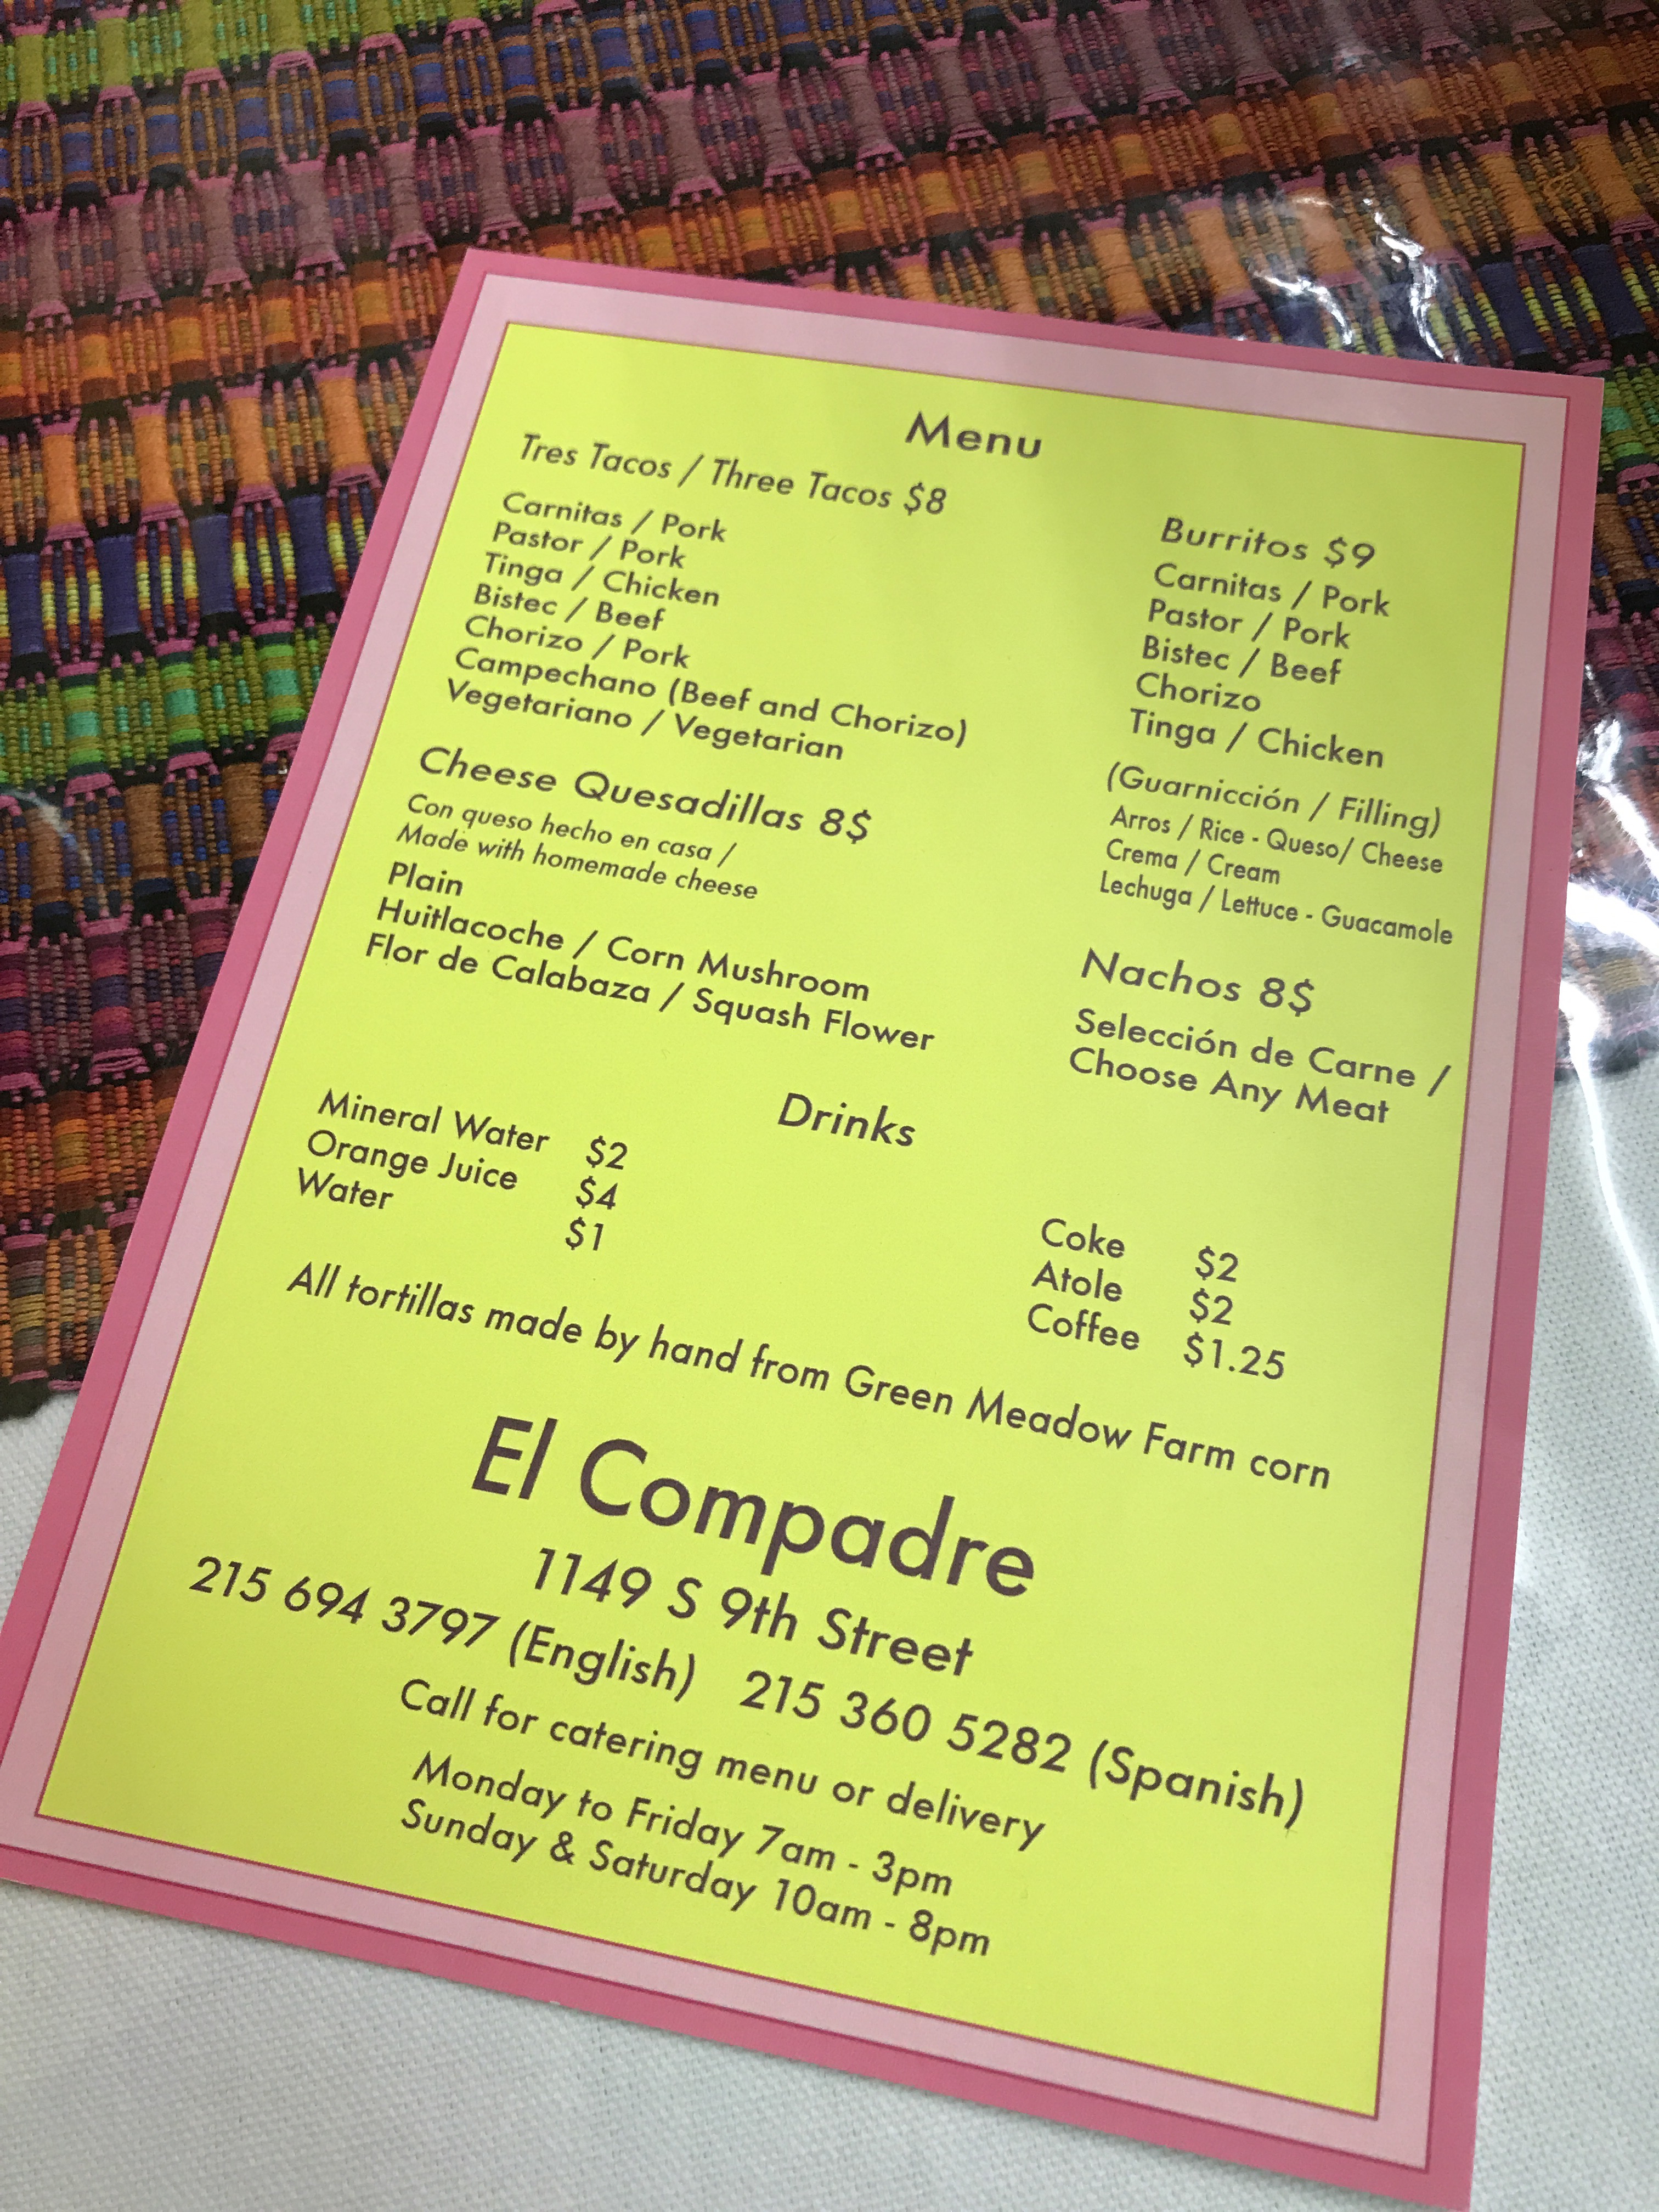 Menu
Tres Tacos / Three Tacos $8
Carnitas / Pork
Pastor / Pork
Tinga / Chicken
Bistec / Beef
Chorizo / Pork
Campechano (Beef and Chorizo)
Vegetariano / Vegetarian
Cheese Quesadillas 8$
Con queso hecho en casa /
Made with homemade cheese
Plain
Huitlacoche / Corn Mushroom
Flor de Calabaza / Squash Flower
Burritos $9
Carnitas / Pork
Pastor / Pork
Bistec / Beef
Chorizo
Tinga / Chicken
(Guarnicción / Filling)
Arros / Rice - Queso/ Cheese
Crema / Cream
Lechuga / Lettuce - Guacamole
Nachos 8$
Selección de Carne /
Choose Any Meat
Drinks
Mineral Water $2
Orange Juice $4
Water $1
Coke $2
Atole $2
Coffee $1.25
All tortillas made by hand from Green Meadow Farm corn
El Compadre
1149 S 9th Street
215 694 3797 (English) 215 360 5282 (Spanish)
Call for catering menu or delivery
Monday to Friday 7am - 3pm
Sunday & Saturday 10am - 8pm